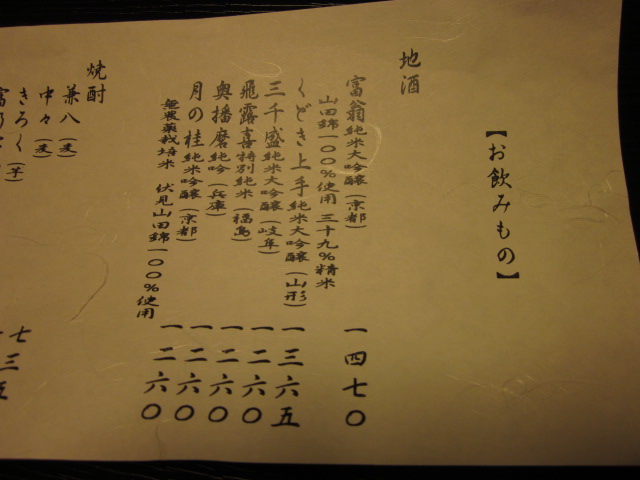 【お飲みもの】
地酒
富翁純米大吟醸(京都) 一四七〇
山田錦一〇〇%使用 三十九%精米
くどき上手純米大吟醸(山形) 一三六五
三千盛純米大吟醸(岐阜) 一二六〇
飛露喜特別純米(福島) 一二六〇
奥播磨純吟(兵庫) 一二六〇
月の桂純米吟醸(京都) 一二六〇
無農薬栽培米 伏見山田錦一〇〇%使用
焼酎
兼八(麦)
中々(麦)
きろく(芋)
七三五